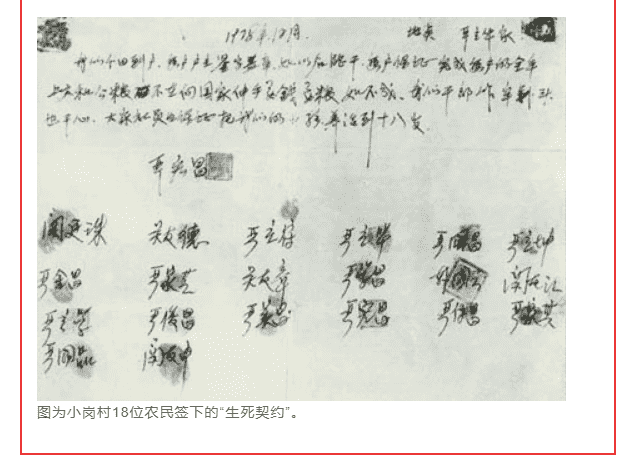 1978年12月. 地点 严立华家
我们分田到户,每户户主签字盖章,如以后能干,每户保证完成每户的全年
上交和公粮 不在向国家伸手要钱要粮,如不成,我们干部作牢刹头
也干心,大家社员也保证把我们的小孩养活到十八岁.
严宏昌
关廷珠 关友德 严立符 严立华 严国昌 严立坤
严金昌 严家芝 关友章 严学昌 韩国云 关友江
严立学 严俊昌 严美昌 严宏昌 严付昌 严家其
严国品 关友申
图为小岗村18位农民签下的“生死契约”。